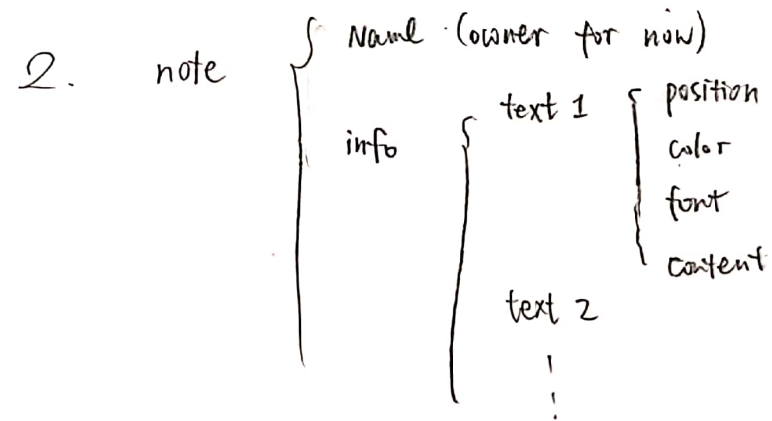 2. note { Name (owner for now)
info { text 1 { position
color
font
content
text 2
⋮